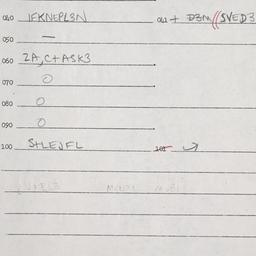 040 IFKNEPL3N 041 + D3M//SVED3
050 —
060 2A,C+ASK3
070 O
080 O
090 O
100 S+LEJFL 101